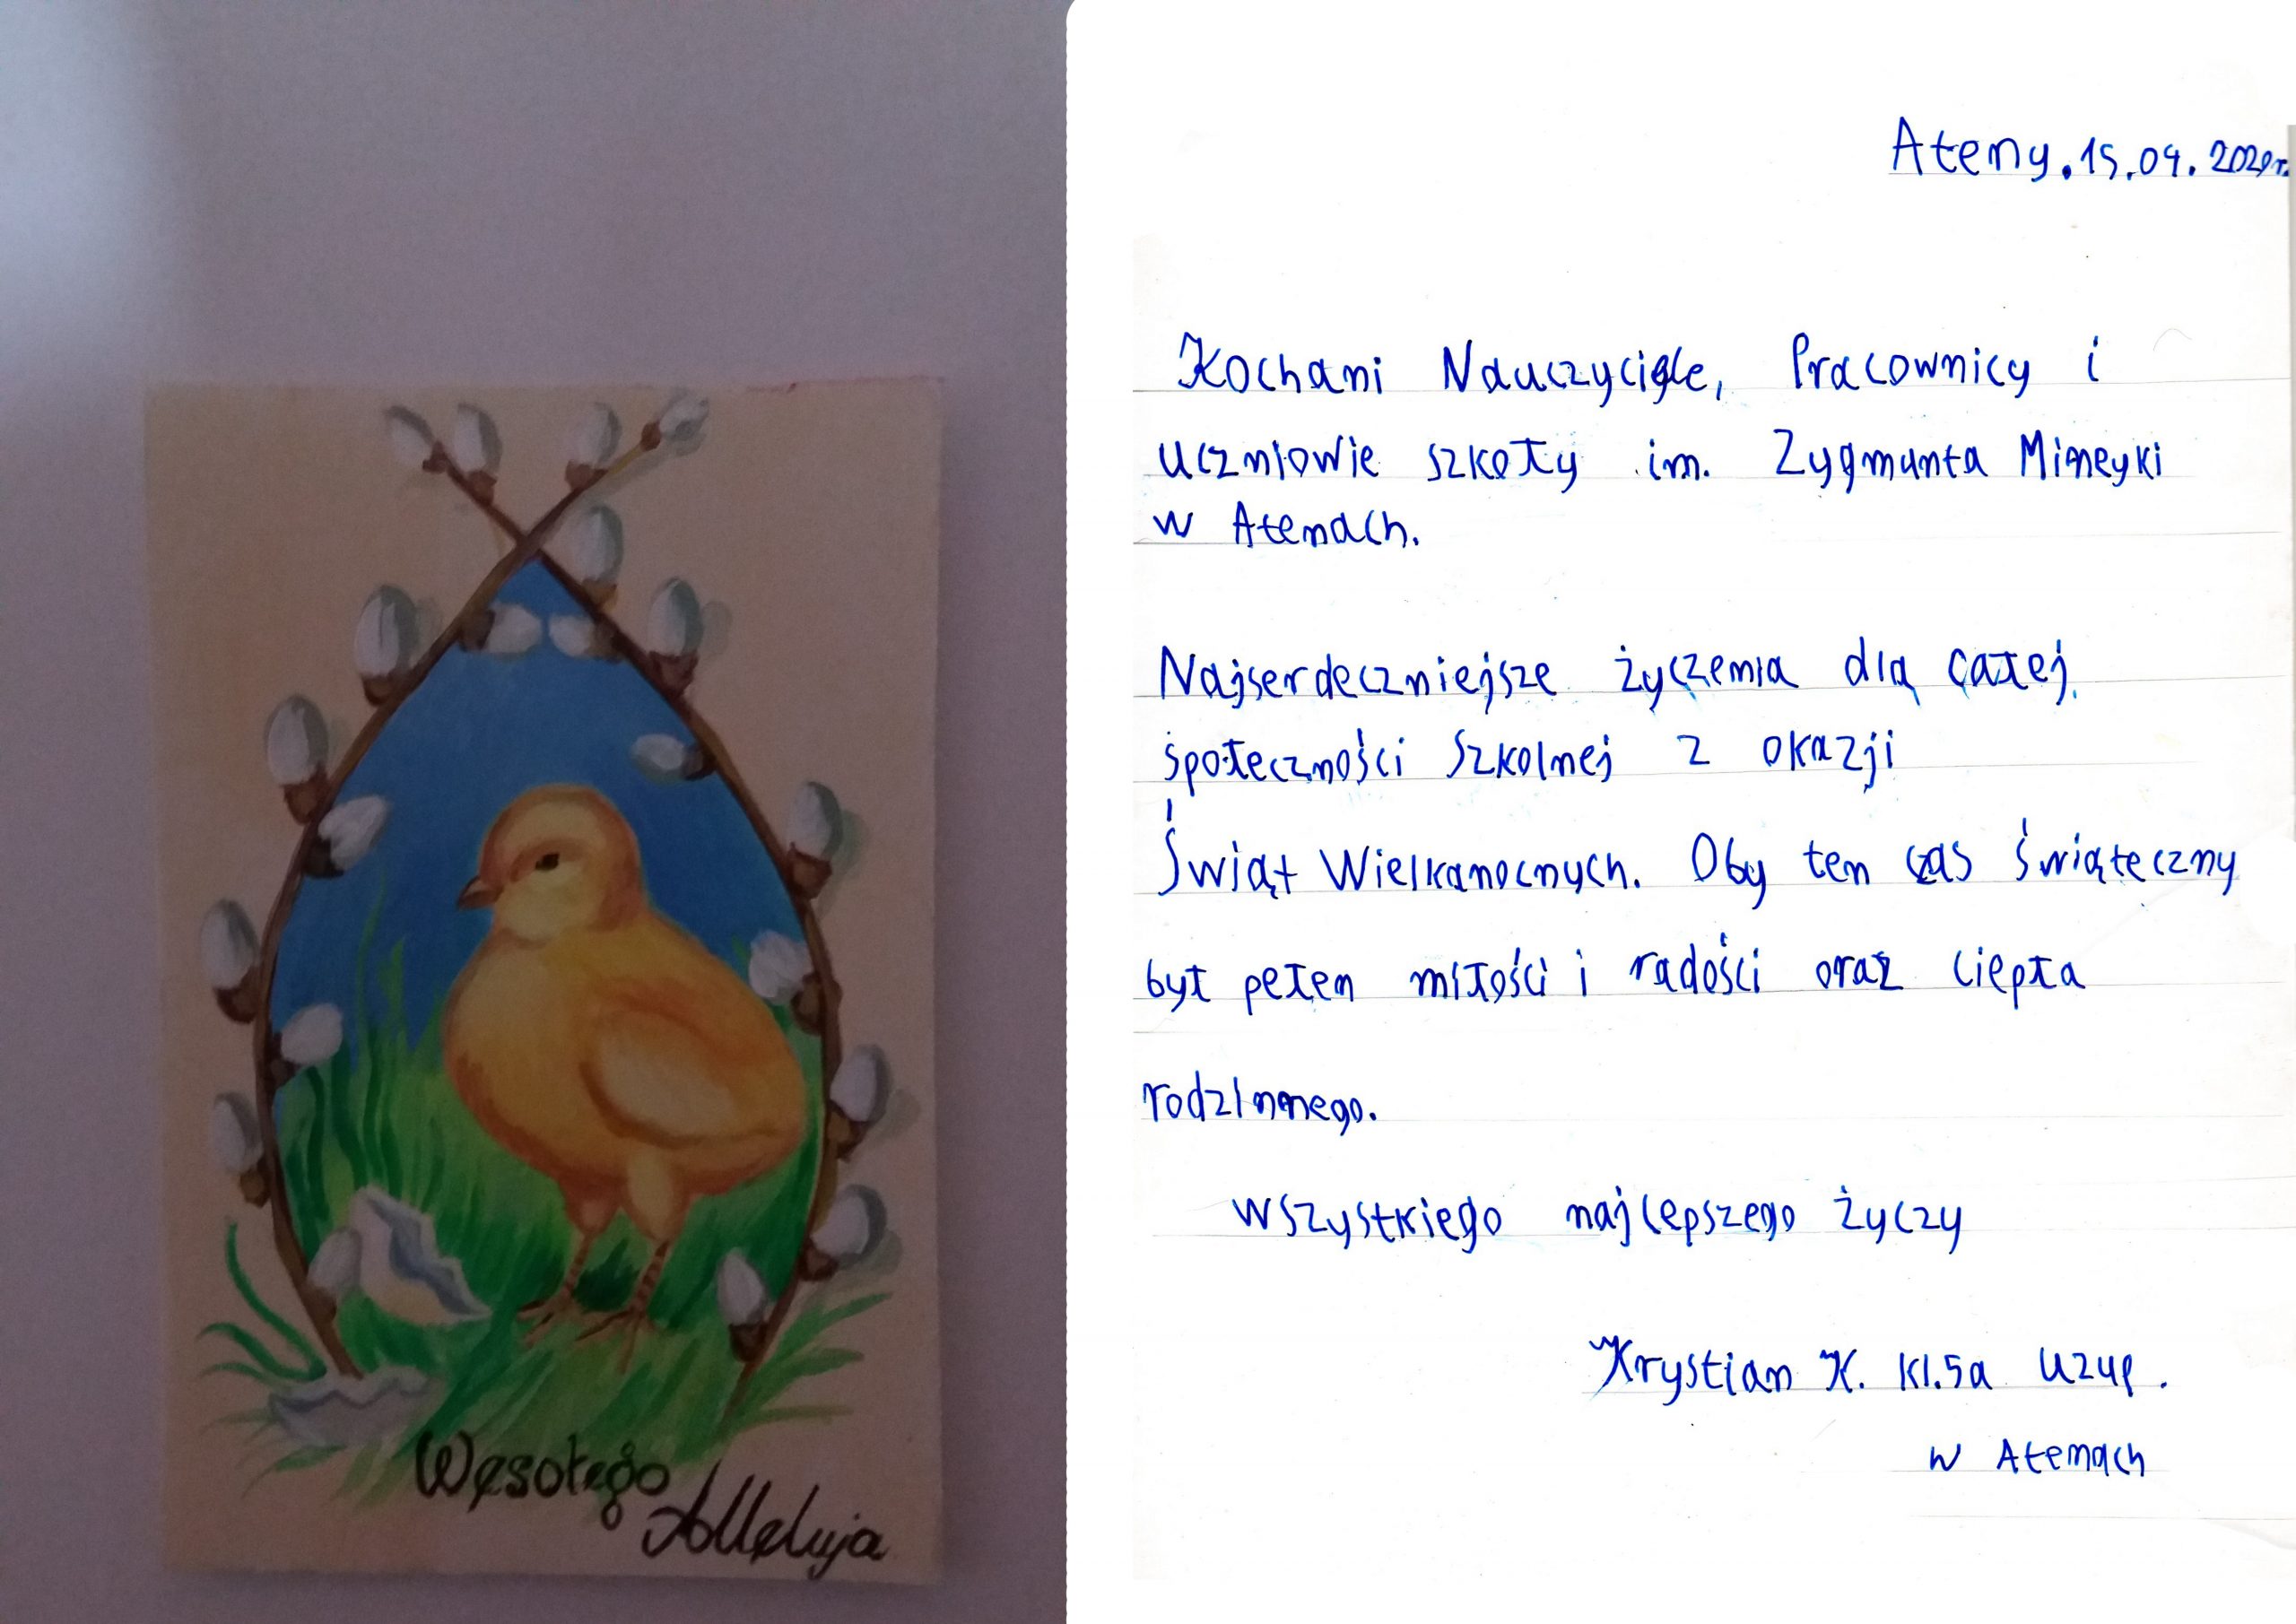 Wesołego
Alleluja
Ateny, 15.04.2020r.
Kochani Nauczyciele, Pracownicy i
uczniowie szkoły im. Zygmunta Mineyki
w Atenach.
Najserdeczniejsze życzenia dla całej
społeczności szkolnej z okazji
Świąt Wielkanocnych. Oby ten czas świąteczny
był pełen miłości i radości oraz ciepła
rodzinnego.
wszystkiego najlepszego życzy
Krystian K. kl.5a uzup.
w Atenach